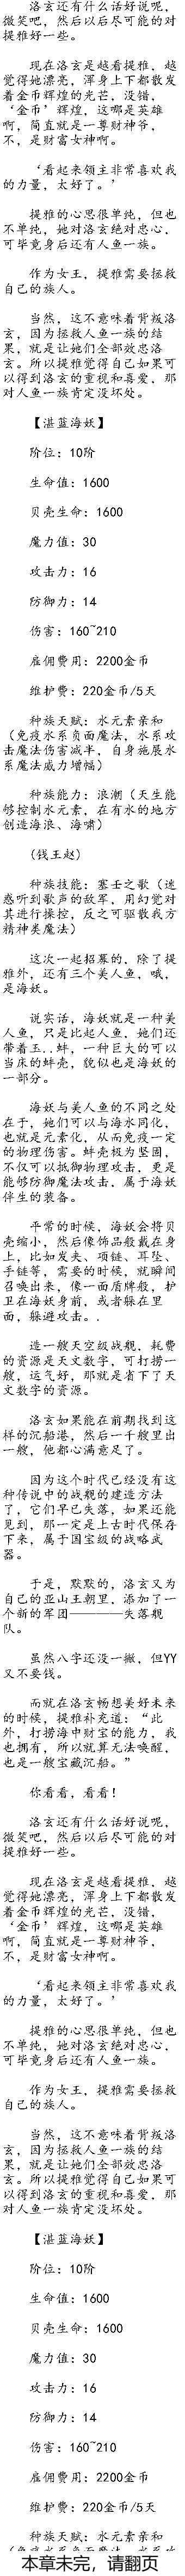 洛玄还有什么话好说呢，
微笑吧，然后以后尽可能的对
提雅好一些。
现在洛玄是越看提雅，越
觉得她漂亮，浑身上下都散发
着金币辉煌的光芒，没错，
‘金币’辉煌，这哪是英雄
啊，简直就是一尊财神爷，
不，是财富女神啊。
‘看起来领主非常喜欢我
的力量，太好了。’
提雅的心思很单纯，但也
不单纯，她对洛玄绝对忠心，
可毕竟身后还有人鱼一族。
作为女王，提雅需要拯救
自己的族人。
当然，这不意味着背叛洛
玄，因为拯救人鱼一族的结
果，就是让她们全部效忠洛
玄。所以提雅觉得自己如果可
以得到洛玄的重视和喜爱，那
对人鱼一族肯定没坏处。
【湛蓝海妖】
阶位：10阶
生命值：1600
贝壳生命：1600
魔力值：30
攻击力：16
防御力：14
伤害：160~210
雇佣费用：2200金币
维护费：220金币/5天
种族天赋：水元素亲和
（免疫水系负面魔法，水系攻
击魔法伤害减半，自身施展水
系魔法威力增幅）
种族能力：浪潮（天生能
够控制水元素，在有水的地方
创造海浪、海啸）
(钱王赵)
种族技能：塞壬之歌（迷
惑听到歌声的敌军，用幻觉对
其进行操控，反之可驱散我方
精神类魔法）
这一次一起招募的，除了提
雅外，还有三个美人鱼，哦，
是海妖。
说实话，海妖就是一种美
人鱼，只是比起人鱼，她们还
带着玉..蚌，一种巨大的可以
当床的蚌壳，貌似也是海妖的
一部分。
海妖与美人鱼的不同之处
在于，她们可以与海水同化，
也就是元素化，从而免疫一定
的物理伤害。蚌壳极为坚固，
不仅可以抵御物理攻击，更是
能够防御魔法攻击，属于海妖
伴生的装备。
平常的时候，海妖会将贝
壳缩小，然后像饰品般戴在身
上，比如发夹、项链、耳坠、
手链等，需要的时候，就瞬间
召唤出来，像一面盾牌般，护
卫在海妖身前，或者躲在里
面，躲避攻击。.
造一艘天空级战舰，耗费
的资源是天文数字，可打捞一
艘，运气好，那就是省下了天
文数字的资源。
洛玄如果能在前期找到这
样的沉船港，然后一千艘里出
一艘，他都心满意足了。
因为这个时代已经没有这
种传说中的战舰的建造方法
了，它们早已失落，如果还能
见到，那一定是上古时代保存
下来，属于国宝级的战略武
器。
于是，默默的，洛玄又为
自己的亚山王朝里，添加了一
个新的军团————失落舰
队。
虽然八字还没一撇，但YY
又不要钱。
而就在洛玄畅想美好未来
的时候，提雅补充道：“此
外，打捞海中财宝的能力，我
也拥有，所以就算无法唤醒，
也是一艘宝藏沉船。”
你看看，看看！
洛玄还有什么话好说呢，
微笑吧，然后以后尽可能的对
提雅好一些。
现在洛玄是越看提雅，越
觉得她漂亮，浑身上下都散发
着金币辉煌的光芒，没错，
‘金币’辉煌，这哪是英雄
啊，简直就是一尊财神爷，
不，是财富女神啊。
‘看起来领主非常喜欢我
的力量，太好了。’
提雅的心思很单纯，但也
不单纯，她对洛玄绝对忠心，
可毕竟身后还有人鱼一族。
作为女王，提雅需要拯救
自己的族人。
当然，这不意味着背叛洛
玄，因为拯救人鱼一族的结
果，就是让她们全部效忠洛
玄。所以提雅觉得自己如果可
以得到洛玄的重视和喜爱，那
对人鱼一族肯定没坏处。
【湛蓝海妖】
阶位：10阶
生命值：1600
贝壳生命：1600
魔力值：30
攻击力：16
防御力：14
伤害：160~210
雇佣费用：2200金币
维护费：220金币/5天
种族天赋：水元素亲和
本章未完，请翻页